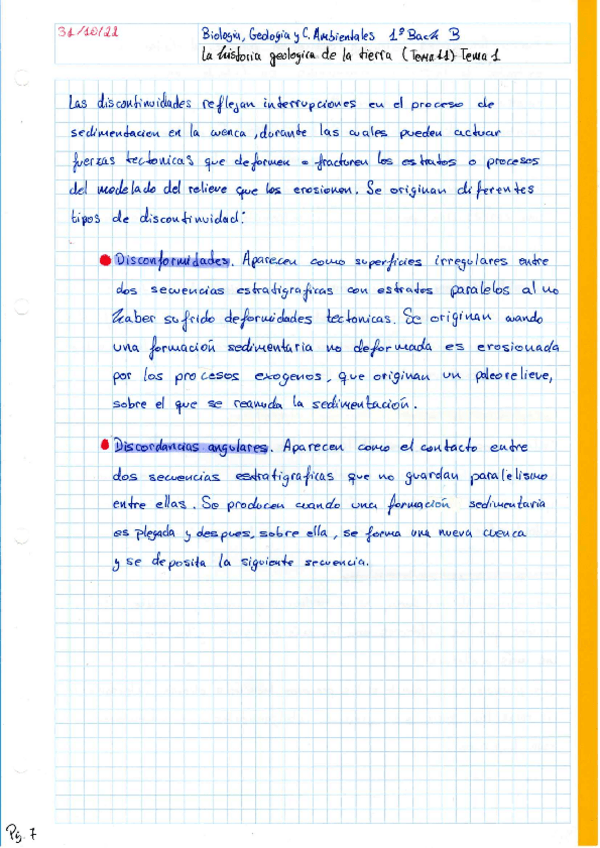 31/10/22
Biologia, Geologia y C. Ambientales 1º Bach B
La historia geologica de la tierra (Tema 11) Tema 1
Las discontinuidades reflejan interrupciones en el proceso de
sedimentacion en la cuenca, durante las cuales pueden actuar
fuerzas tectonicas que deformen o fracturen los estratos o procesos
del modelado del relieve que los erosionen. Se originan diferentes
tipos de discontinuidad:
Disconformidades. Aparecen como superficies irregulares entre
dos secuencias estratigraficas con estratos paralelos al no
haber sufrido deformidades tectonicas. Se originan cuando
una formación sedimentaria no deformada es erosionada
por los procesos exogenos, que originan un paleorelieve,
sobre el que se reanuda la sedimentación.
Discordancias angulares. Aparecen como el contacto entre
dos secuencias estratigraficas que no guardan paralelismo
entre ellas. Se producen cuando una formación sedimentaria
es plegada y despues, sobre ella, se forma una nueva cuenca
y se deposita la siguiente secuencia.
Pg. 7